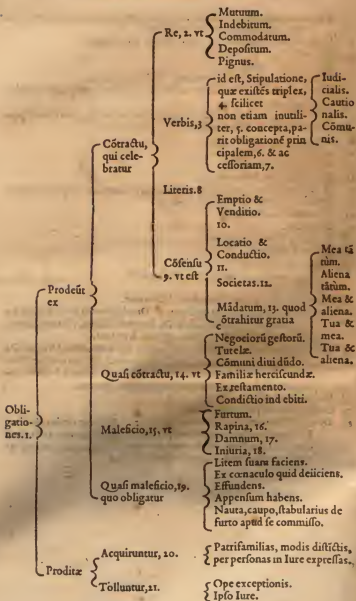 Obli-
gatio-
nes.1.
Prodeūt
ex
Cōtractu,
qui cele-
bratur
Re, 2. vt
Mutuum.
Indebitum.
Commodatum.
Depositum.
Pignus.
Verbis,3
id est, Stipulatione,
quæ existēs triplex,
4. scilicet
non etiam inutili-
ter, 5. concepta,pa-
rit obligationē prin
cipalem,6. & ac
cessoriam,7.
Iudi-
cialis.
Cautio
nalis.
Cōmu-
nis.
Literis.8
Cōsensu
9. vt est
Emptio &
Venditio.
10.
Locatio &
Conductio.
11.
Societas.12.
Mādatum, 13. quod
cōtrahitur gratia
Mea tā
tùm.
Aliena
tātùm.
Mea &
aliena.
Tua &
mea.
Tua &
aliena.
Quasi cōtractu, 14. vt
Negociorū gestorū.
Tutelæ.
Cōmuni diui dūdo.
Familiæ herciscundæ.
Ex testamento.
Condictio ind ebiti.
Maleficio,15. vt
Furtum.
Rapina, 16.
Damnum, 17.
Iniuria, 18.
Quasi maleficio,19.
quo obligatur
Litem suam faciens.
Ex cœnaculo quid deiiciens.
Effundens.
Appensum habens.
Nauta,caupo,stabularius de
furto apud se commisso.
Proditæ
Acquiruntur, 20.
Patrifamilias, modis distictis,
per personas in Iure expressas.
Tolluntur,21.
Ope exceptionis.
Ipso Iure.